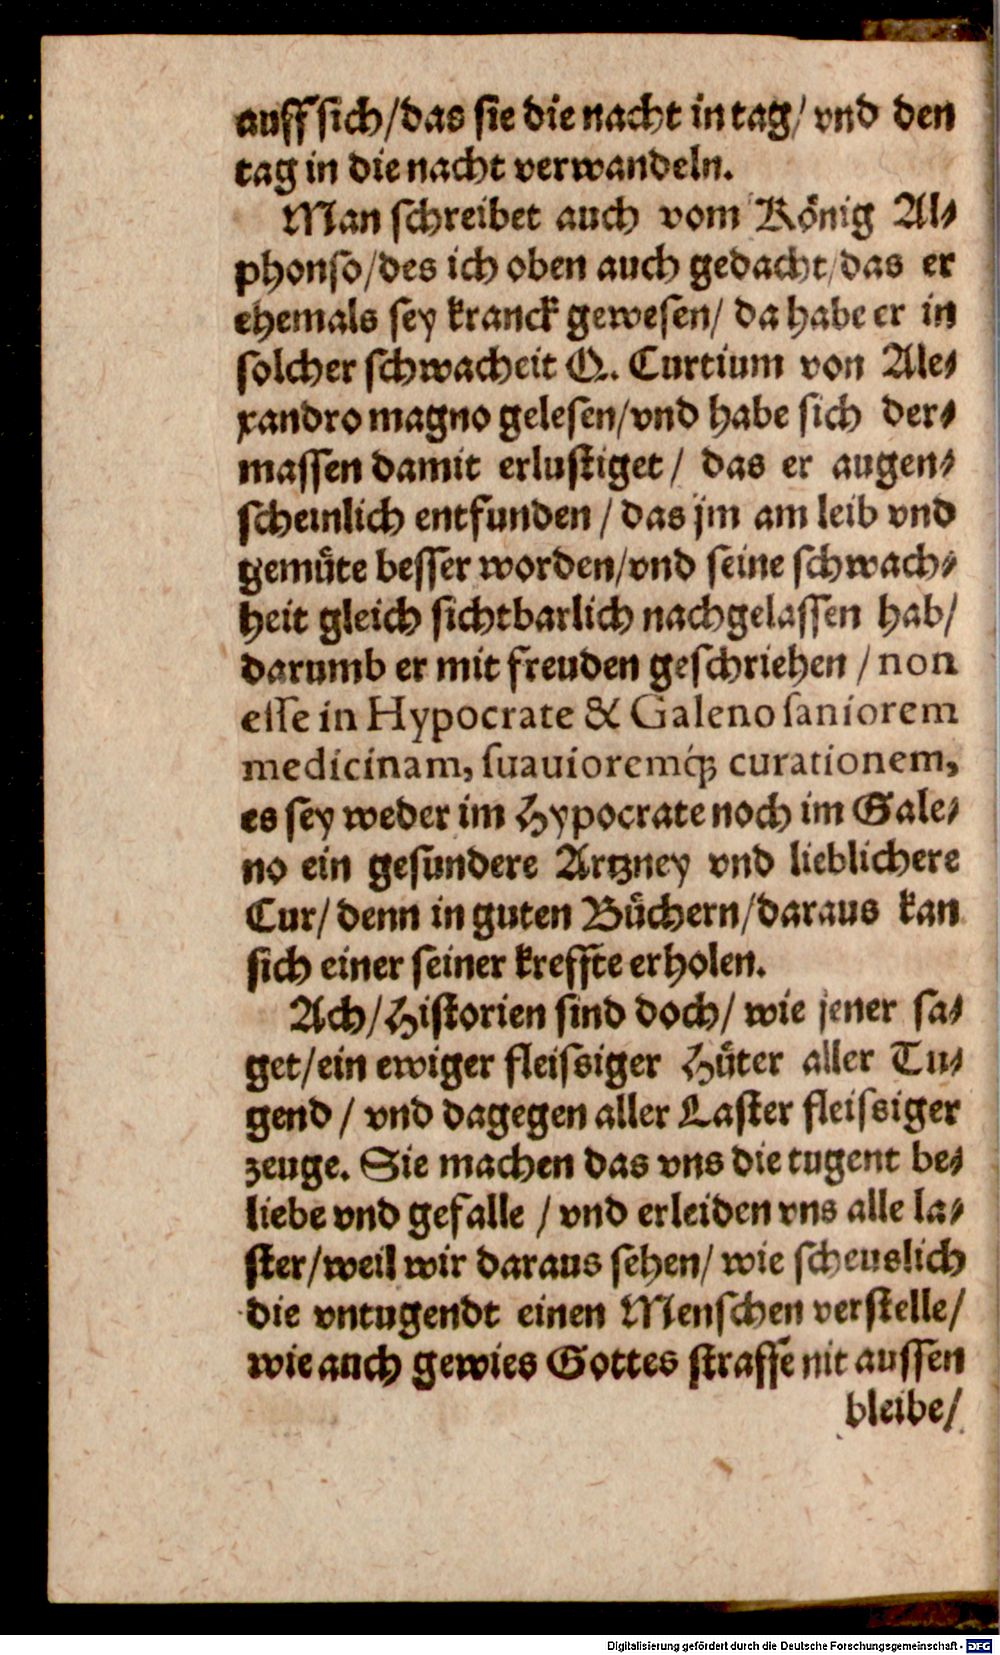 auff sich/das sie die nacht in tag/ vnd den
tag in die nacht verwandeln.
Man schreibet auch vom König Al⸗
phonso/des ich oben auch gedacht/das er
ehemals sey kranck gewesen/ da habe er in
solcher schwacheit Q. Curtium von Ale⸗
xandro magno gelesen/vnd habe sich der⸗
massen damit erlustiget/ das er augen⸗
scheinlich entfunden/das jm am leib vnd
gemüte besser worden/vnd seine schwach⸗
heit gleich sichtbarlich nachgelassen hab/
darumb er mit freuden geschriehen/non
esse in Hypocrate & Galeno saniorem
medicinam, suauioremq́; curationem,
es sey weder im Hypocrate noch im Gale⸗
no ein gesundere Artzney vnd lieblichere
Cur/denn in guten Büchern/daraus kan
sich einer seiner kreffte erholen.
Ach/Historien sind doch/ wie jener sa⸗
get/ein ewiger fleissiger Hüter aller Tu⸗
gend/ vnd dagegen aller Laster fleissiger
zeuge. Sie machen das vns die tugent be⸗
liebe vnd gefalle/ vnd erleiden vns alle la⸗
ster/weil wir daraus sehen/ wie scheuslich
die vntugendt einen Menschen verstelle/
wie auch gewies Gottes straffe nit aussen
bleibe/
Digitalisierung gefördert durch die Deutsche Forschungsgemeinschaft - DFG